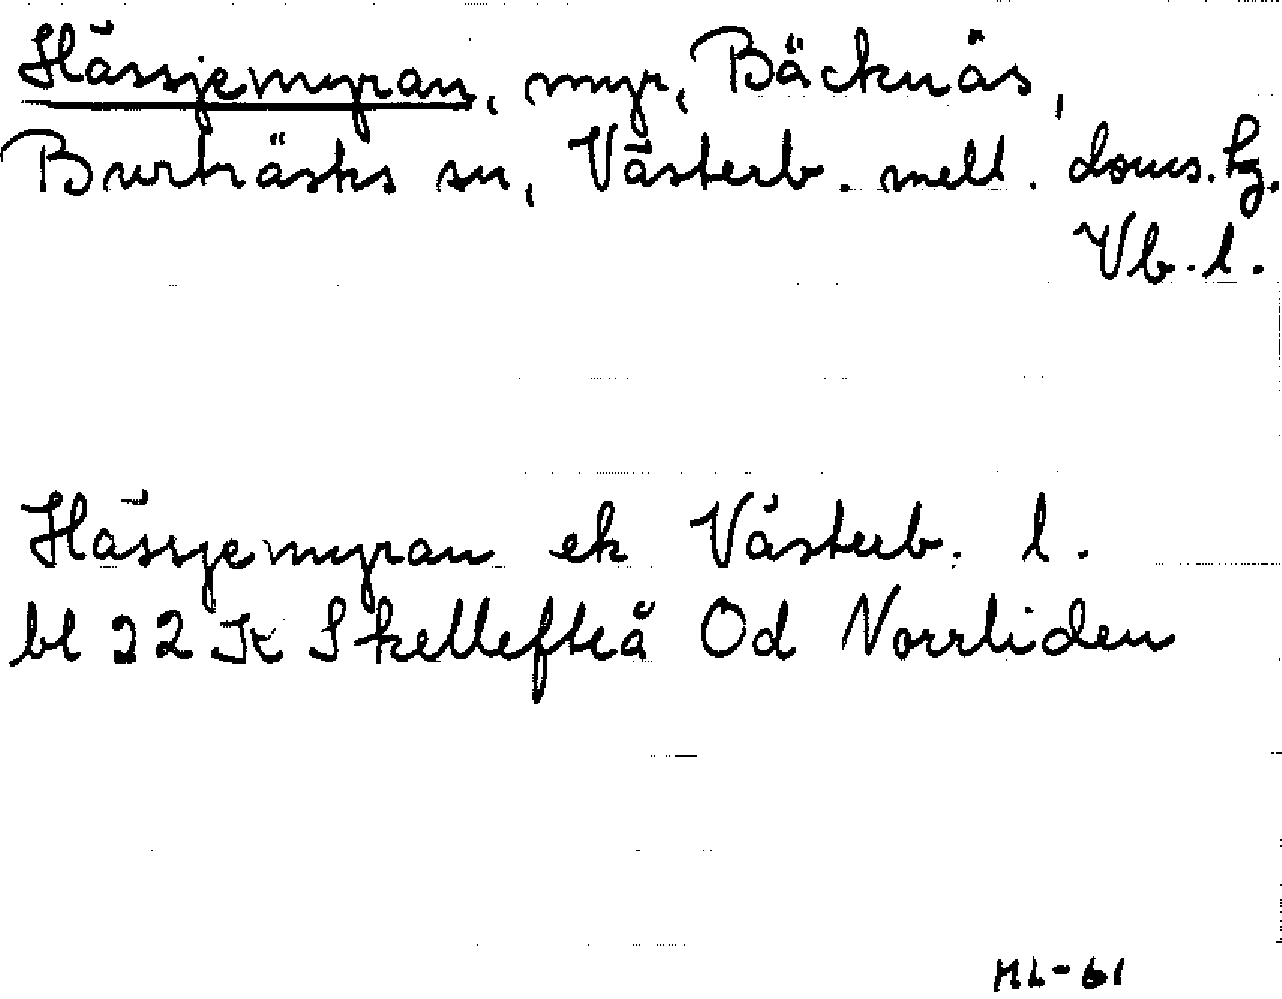 Hässjemyran, myr, Bäcknäs,
Burträsks sn, Västerb. mell. doms.hg.
Vb.l.
Hässjemyran ek Västerb. l.
bl 22 K Skellefteå Od Norrliden
ML-61